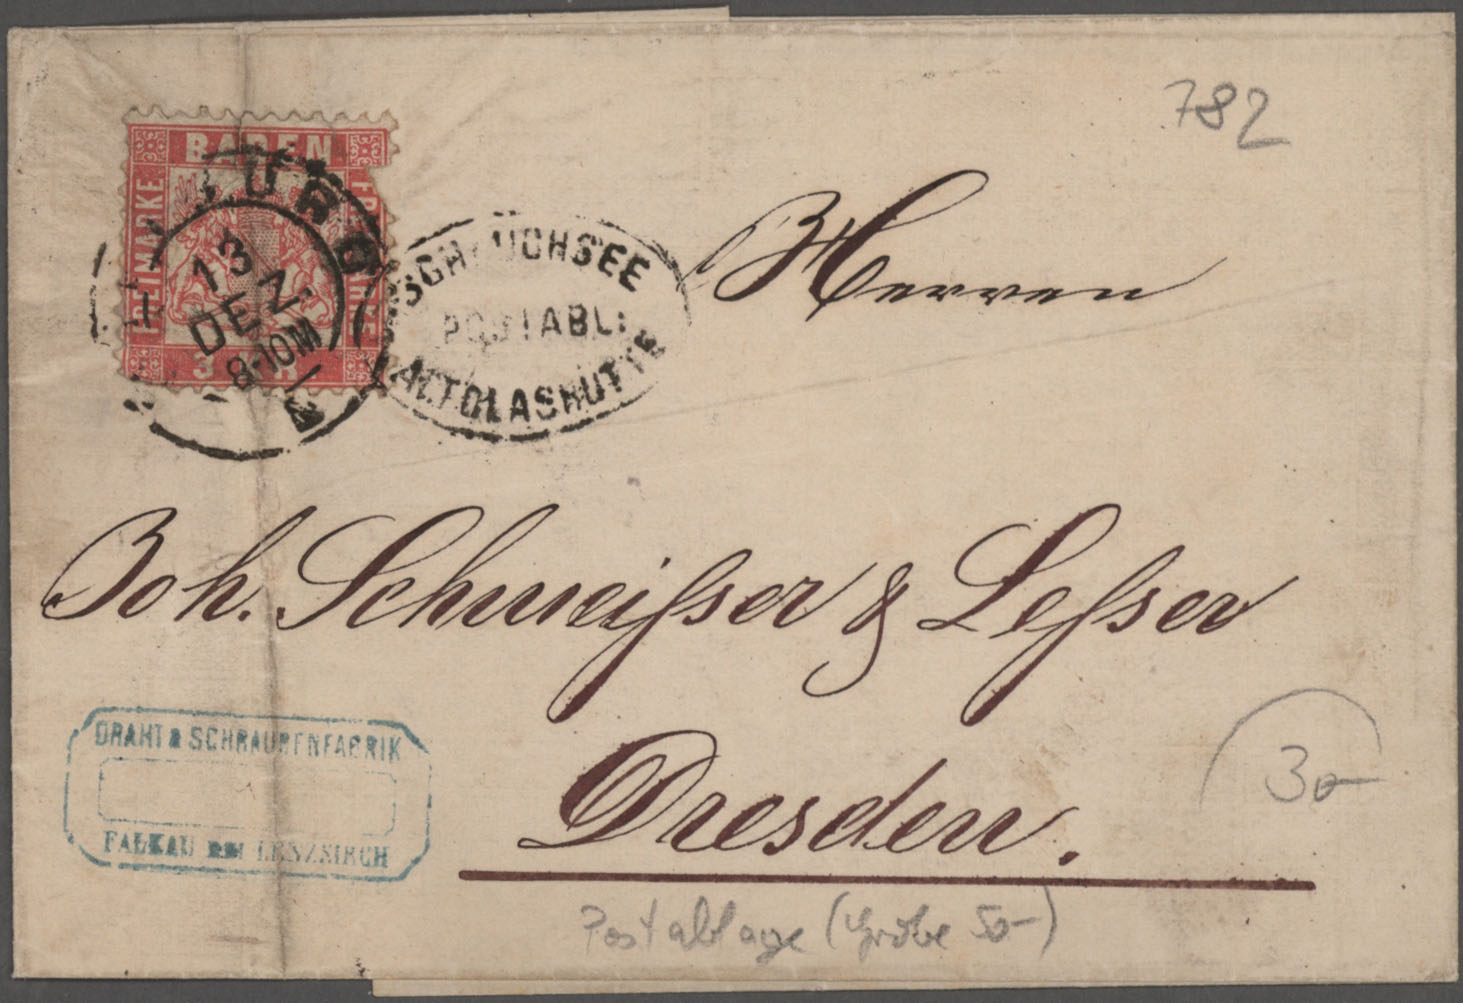 782
BADEN
FREIMARKE
3 KR
13
DEZ.
8-10 M
SCHLUCHSEE
POSTABL:
ALTGLASHÜTTE
Herren
Joh. Schmeißser & Leßser
Dresden.
DRAHT & SCHRAUBENFABRIK
FALKAU BEI LENZKIRCH
30-
Postablage (Grobe 50-)